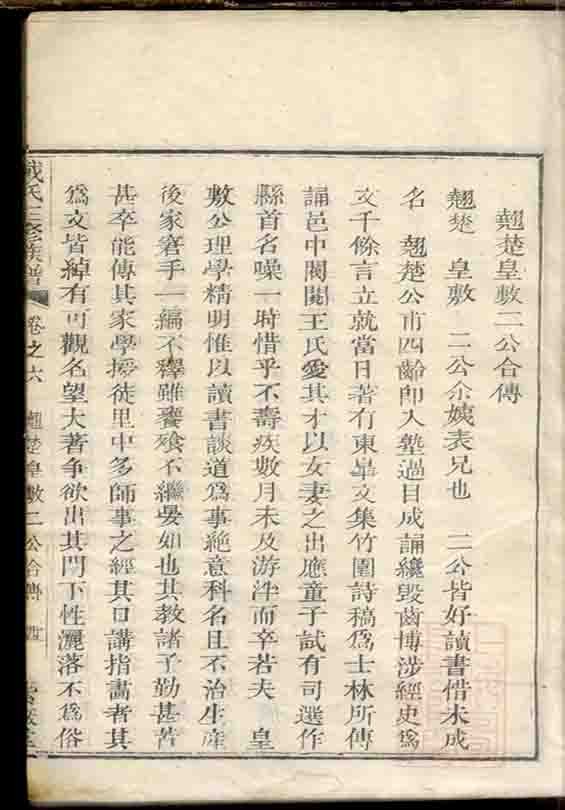 翹楚皇敷二公合傳
翹楚 皇敷 二公余姨表兄也 二公皆好讀書惜未成
名 翹楚公甫四齡即入塾過目成誦纔毀齒博涉經史為
文千餘言立就當日著有東臯文集竹園詩稿為士林所傳
誦邑中閥閱王氏愛其才以女妻之出應童子試有司選作
縣首名噪一時惜乎不壽疾數月未及游泮而卒若夫 皇
敷公理學精明惟以讀書談道為事絶意科名且不治生產
後家窘手一編不釋雖饔飱不繼晏如也其教諸子勤甚苦
甚卒能傳其家學授徒里中多師事之經其口講指畫者其
為文皆綽有可觀名望大著争欲出其門下性灑落不為俗
戴氏三修族譜 卷之六 翹楚皇敷二公合傳